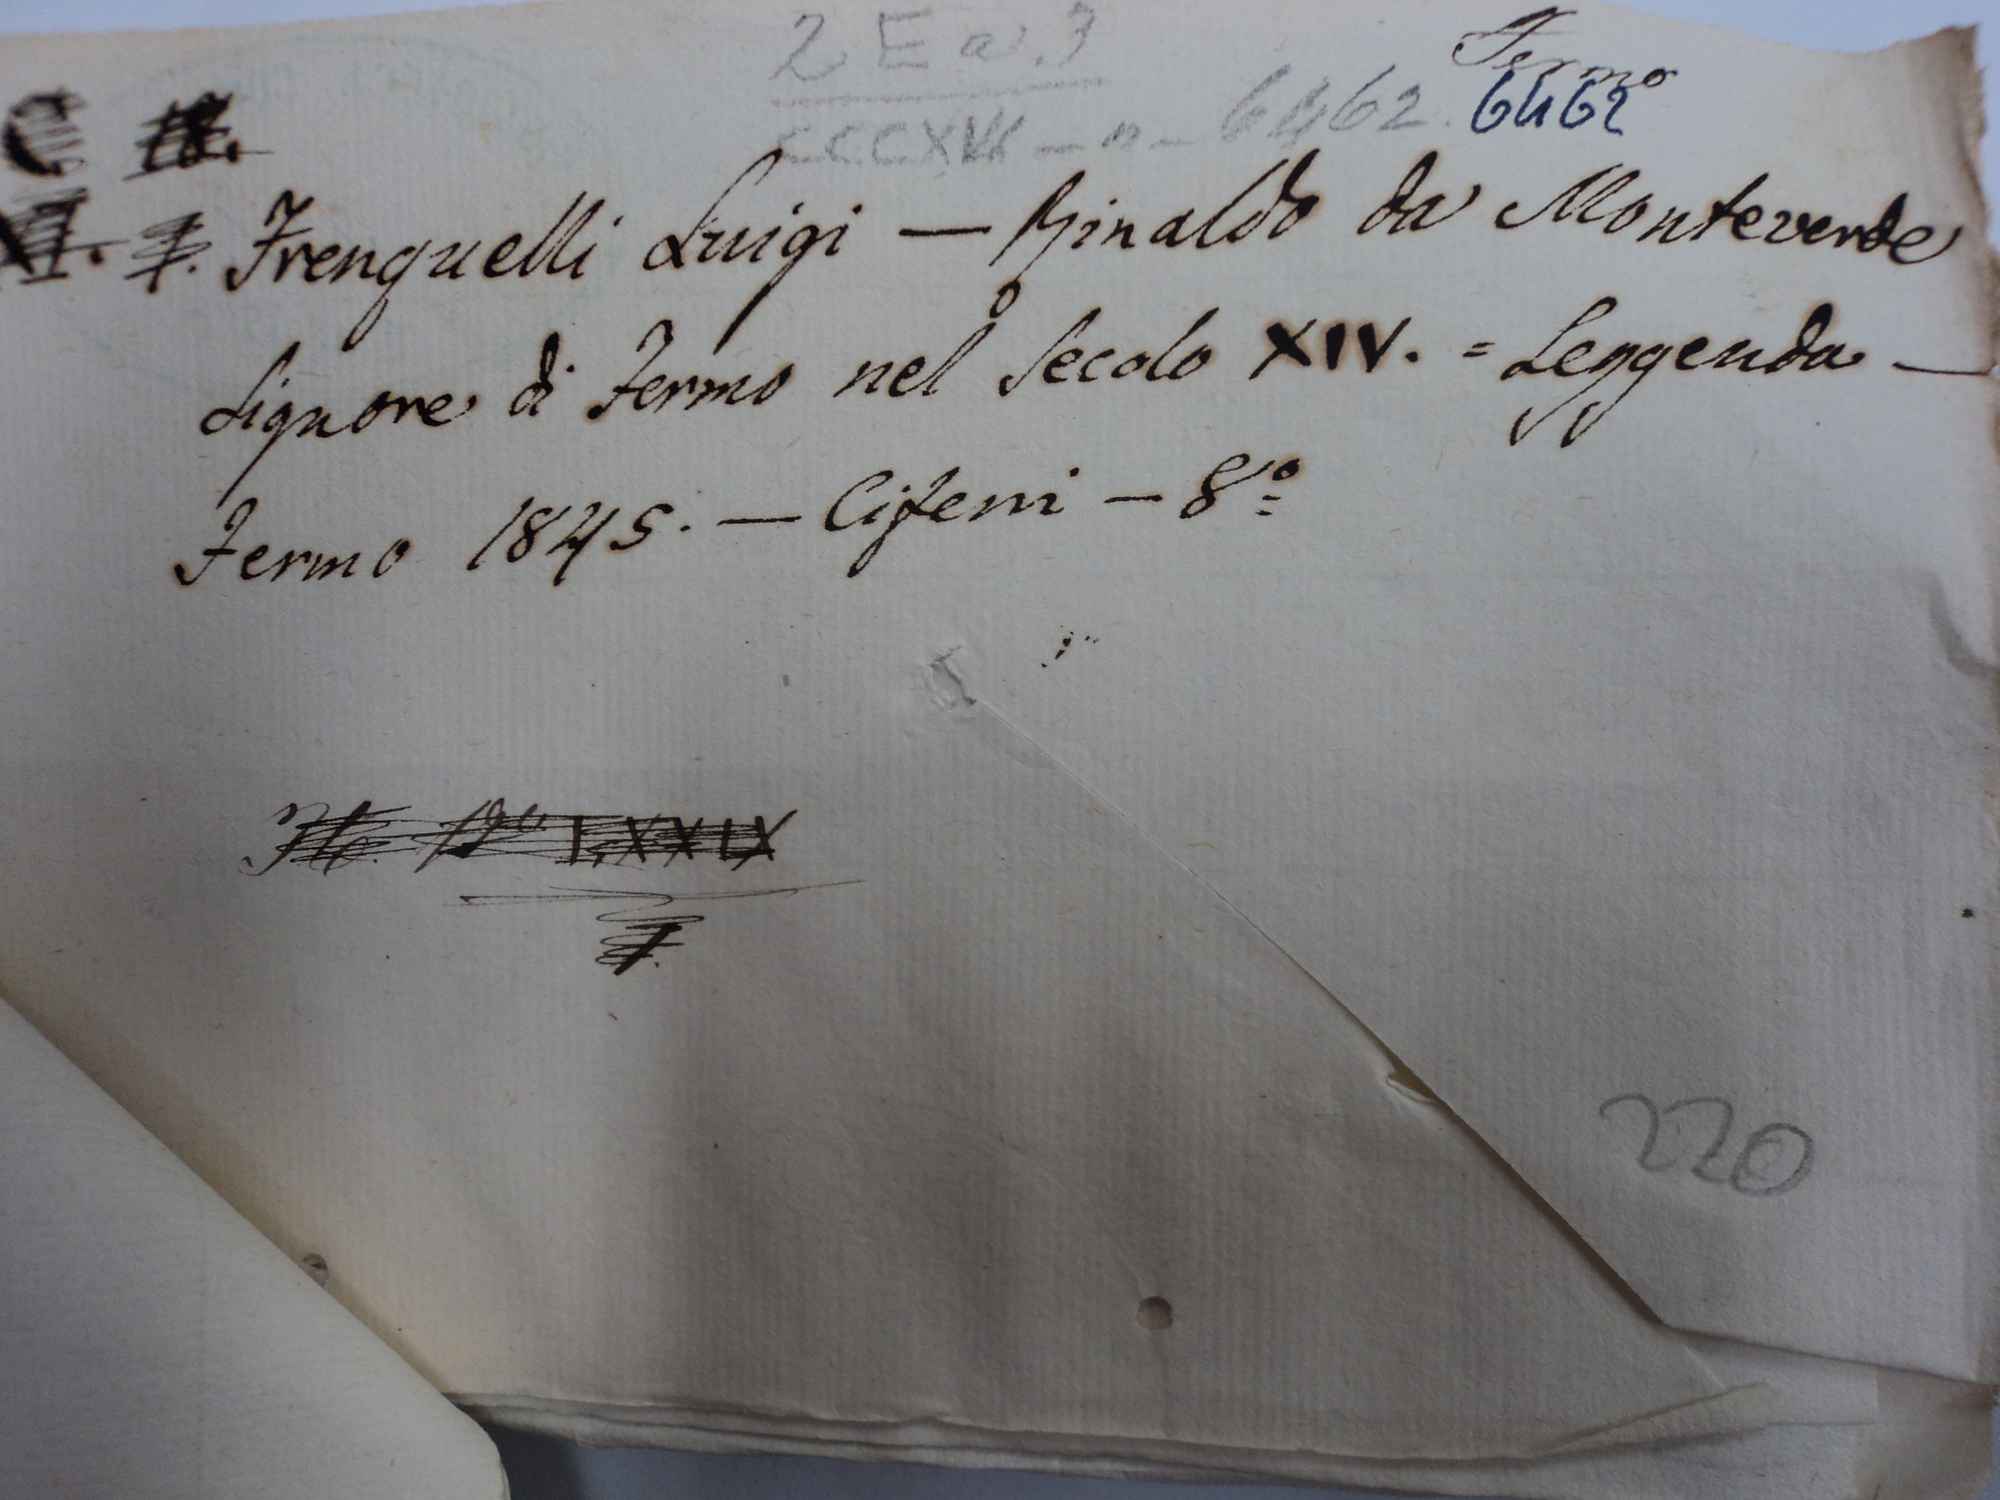 2 E a. 3
Fermo
6462 6462
Frenguelli Luigi — Rinaldo da Monteverde
Signore di Fermo nel Secolo XIV. = Leggenda —
Fermo 1845. — Ciferri — 8º
Nº LXXIX
220